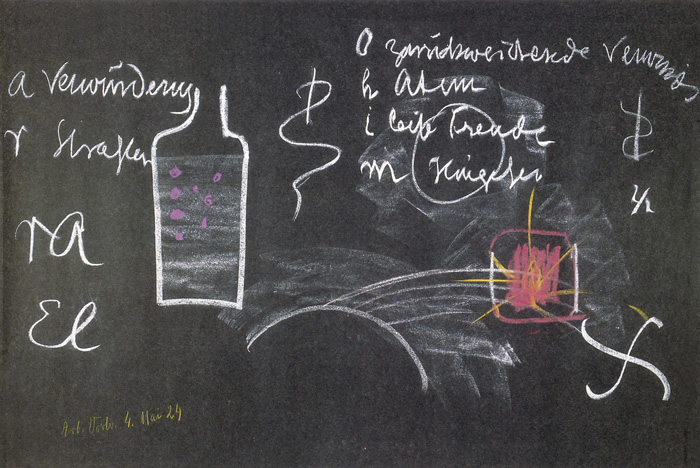 a Verwunderung
r Strahlen
ra
El
O zurückweichende Verwund
h Atem
i leise Freude
m Hingehen
Arb. Vortr. 4. Mai 24